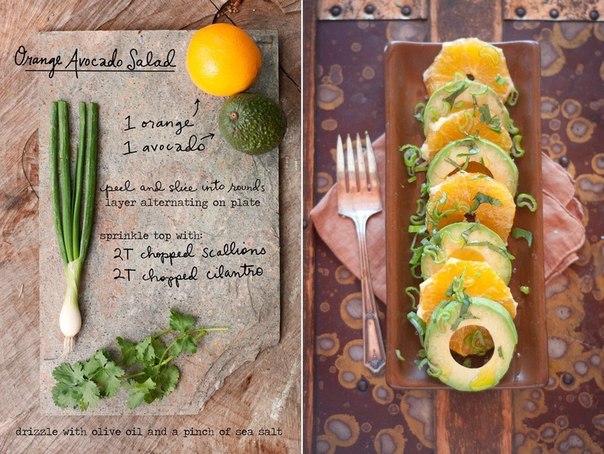 Orange Avocado Salad
1 orange
1 avocado
peel and slice into rounds
layer alternating on plate
sprinkle top with:
2T chopped scallions
2T chopped cilantro
drizzle with olive oil and a pinch of sea salt